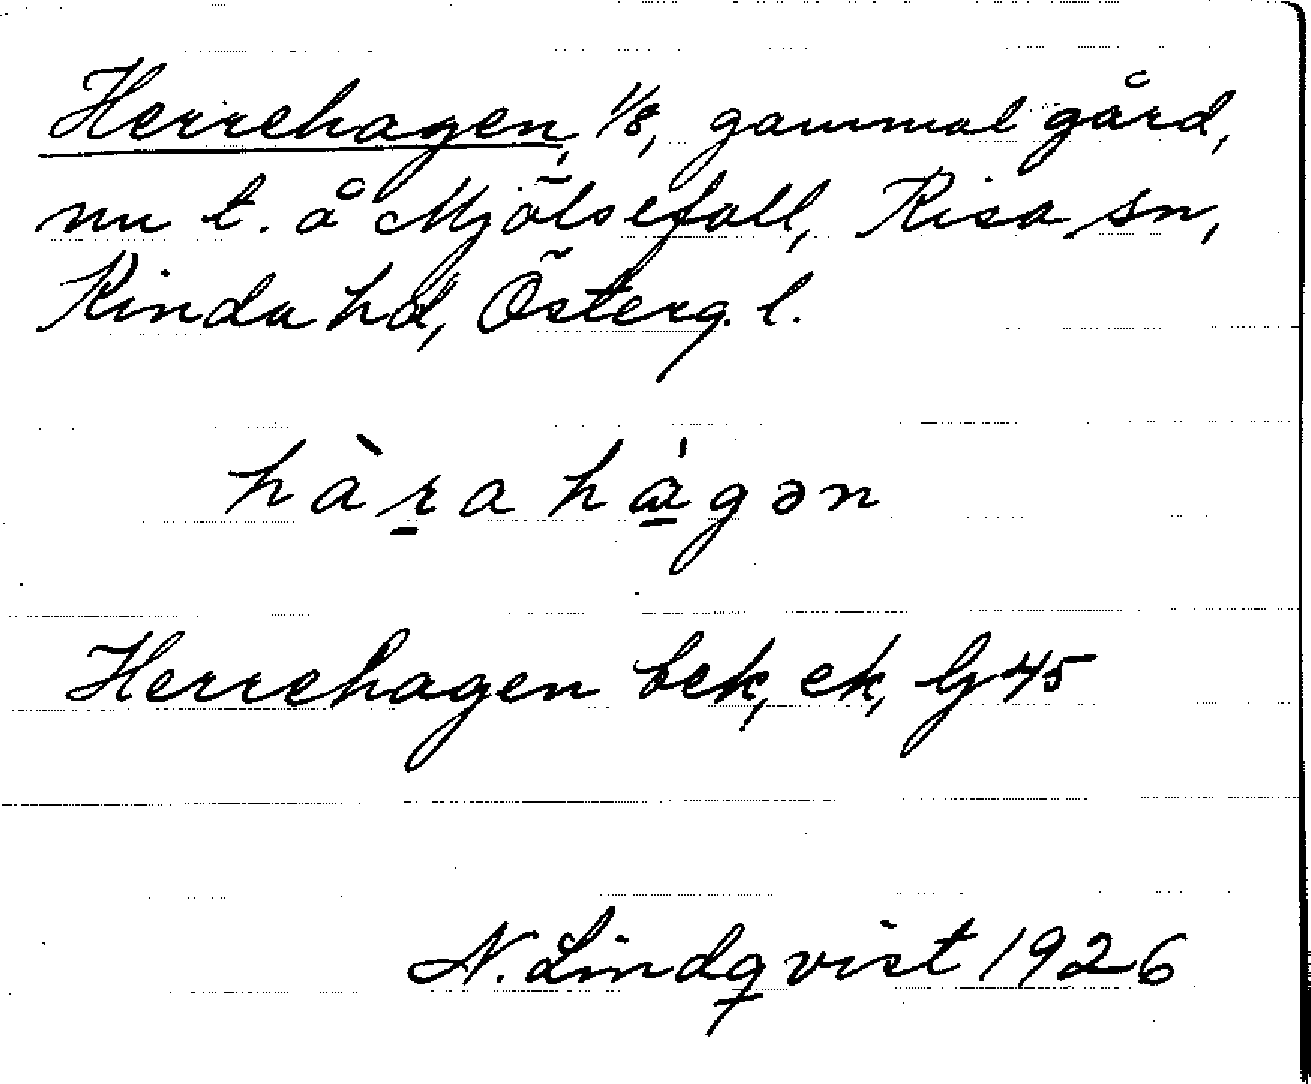 Herrehagen, 1/8, gammal gård,
nu t. å Mjölsefall, Kisa sn,
Kinda hd, Österg. l.
hàṟa hὰ̱gən
Herrehagen bek, ek, G 45
N. Lindqvist 1926